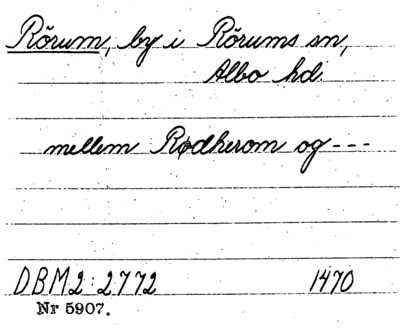 Rörum, by i Rörums sn,
Albo hd
mellem Rødherom og ---
DBM2:2772 1470
Nr 5907.